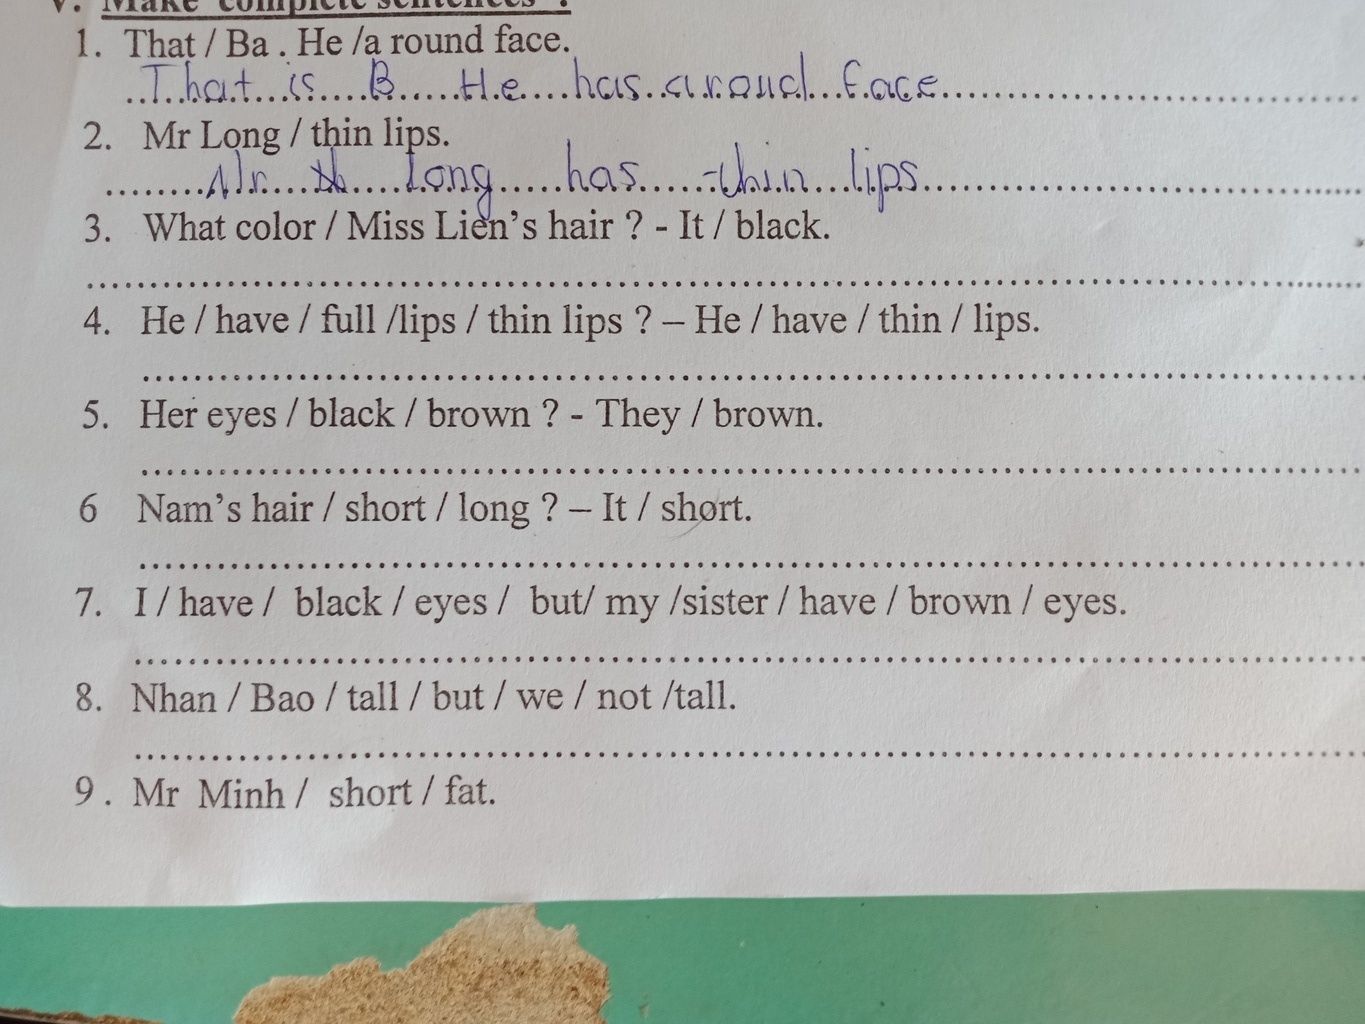 V. Make complete sentences :
1. That / Ba . He /a round face.
That is B He has a roud face
2. Mr Long / thin lips.
Mr long has thin lips
3. What color / Miss Lien's hair ? - It / black.
4. He / have / full /lips / thin lips ? – He / have / thin / lips.
5. Her eyes / black / brown ? - They / brown.
6 Nam's hair / short / long ? – It / short.
7. I / have / black / eyes / but/ my /sister / have / brown / eyes.
8. Nhan / Bao / tall / but / we / not /tall.
9 . Mr Minh / short / fat.